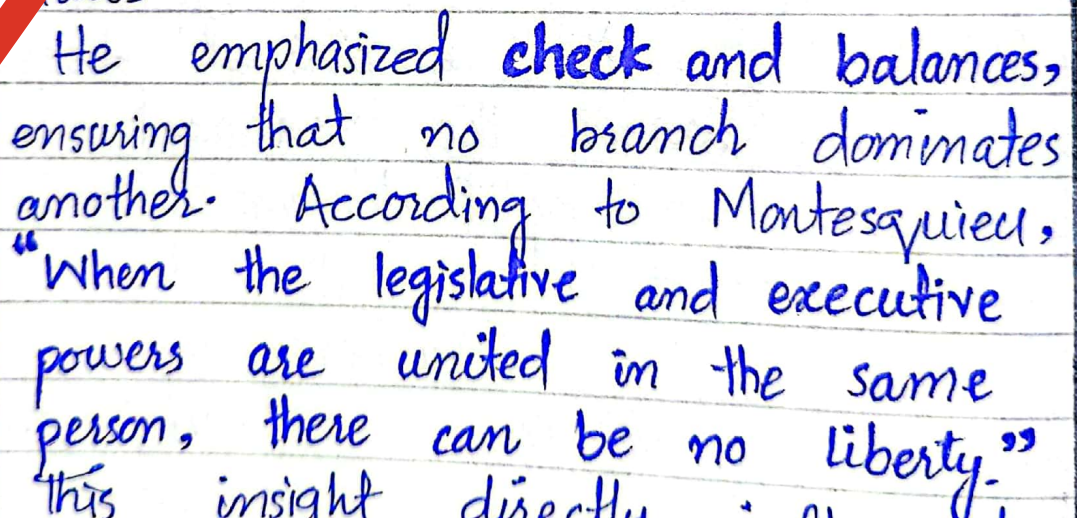 He emphasized check and balances,
ensuring that no branch dominates
another. According to Montesquieu,
“When the legislative and executive
powers are united in the same
person, there can be no liberty.”
This insight directly